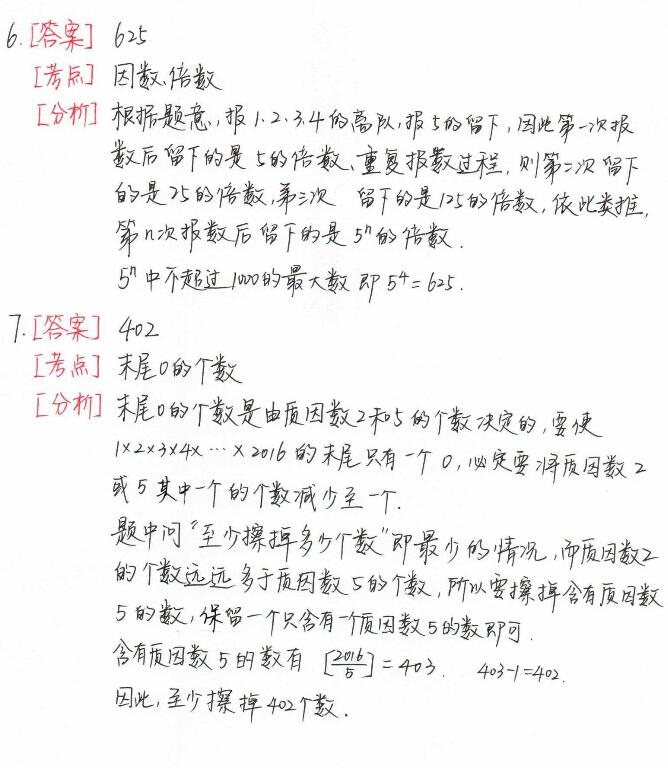 6.[答案] 625
[考点] 因数、倍数
[分析] 根据题意,报1.2.3.4的离队,报5的留下,因此第一次报
数后留下的是5的倍数、重复报数过程,则第二次留下
的是25的倍数,第三次 留下的是125的倍数,依此类推,
第n次报数后留下的是5ⁿ的倍数.
5ⁿ中不超过1000的最大数即5⁴=625.
7.[答案] 402
[考点] 末尾0的个数
[分析] 末尾0的个数是由质因数2和5的个数决定的,要使
1×2×3×4×…×2016的末尾只有一个0,必定要将质因数2
或5其中一个的个数减少至一个.
题中问"至少擦掉多少个数"即最少的情况,而质因数2
的个数远远多于质因数5的个数,所以要擦掉含有质因数
5的数,保留一个只含有一个质因数5的数即可.
含有质因数5的数有 [2016/5]=403. 403-1=402.
因此,至少擦掉402个数.